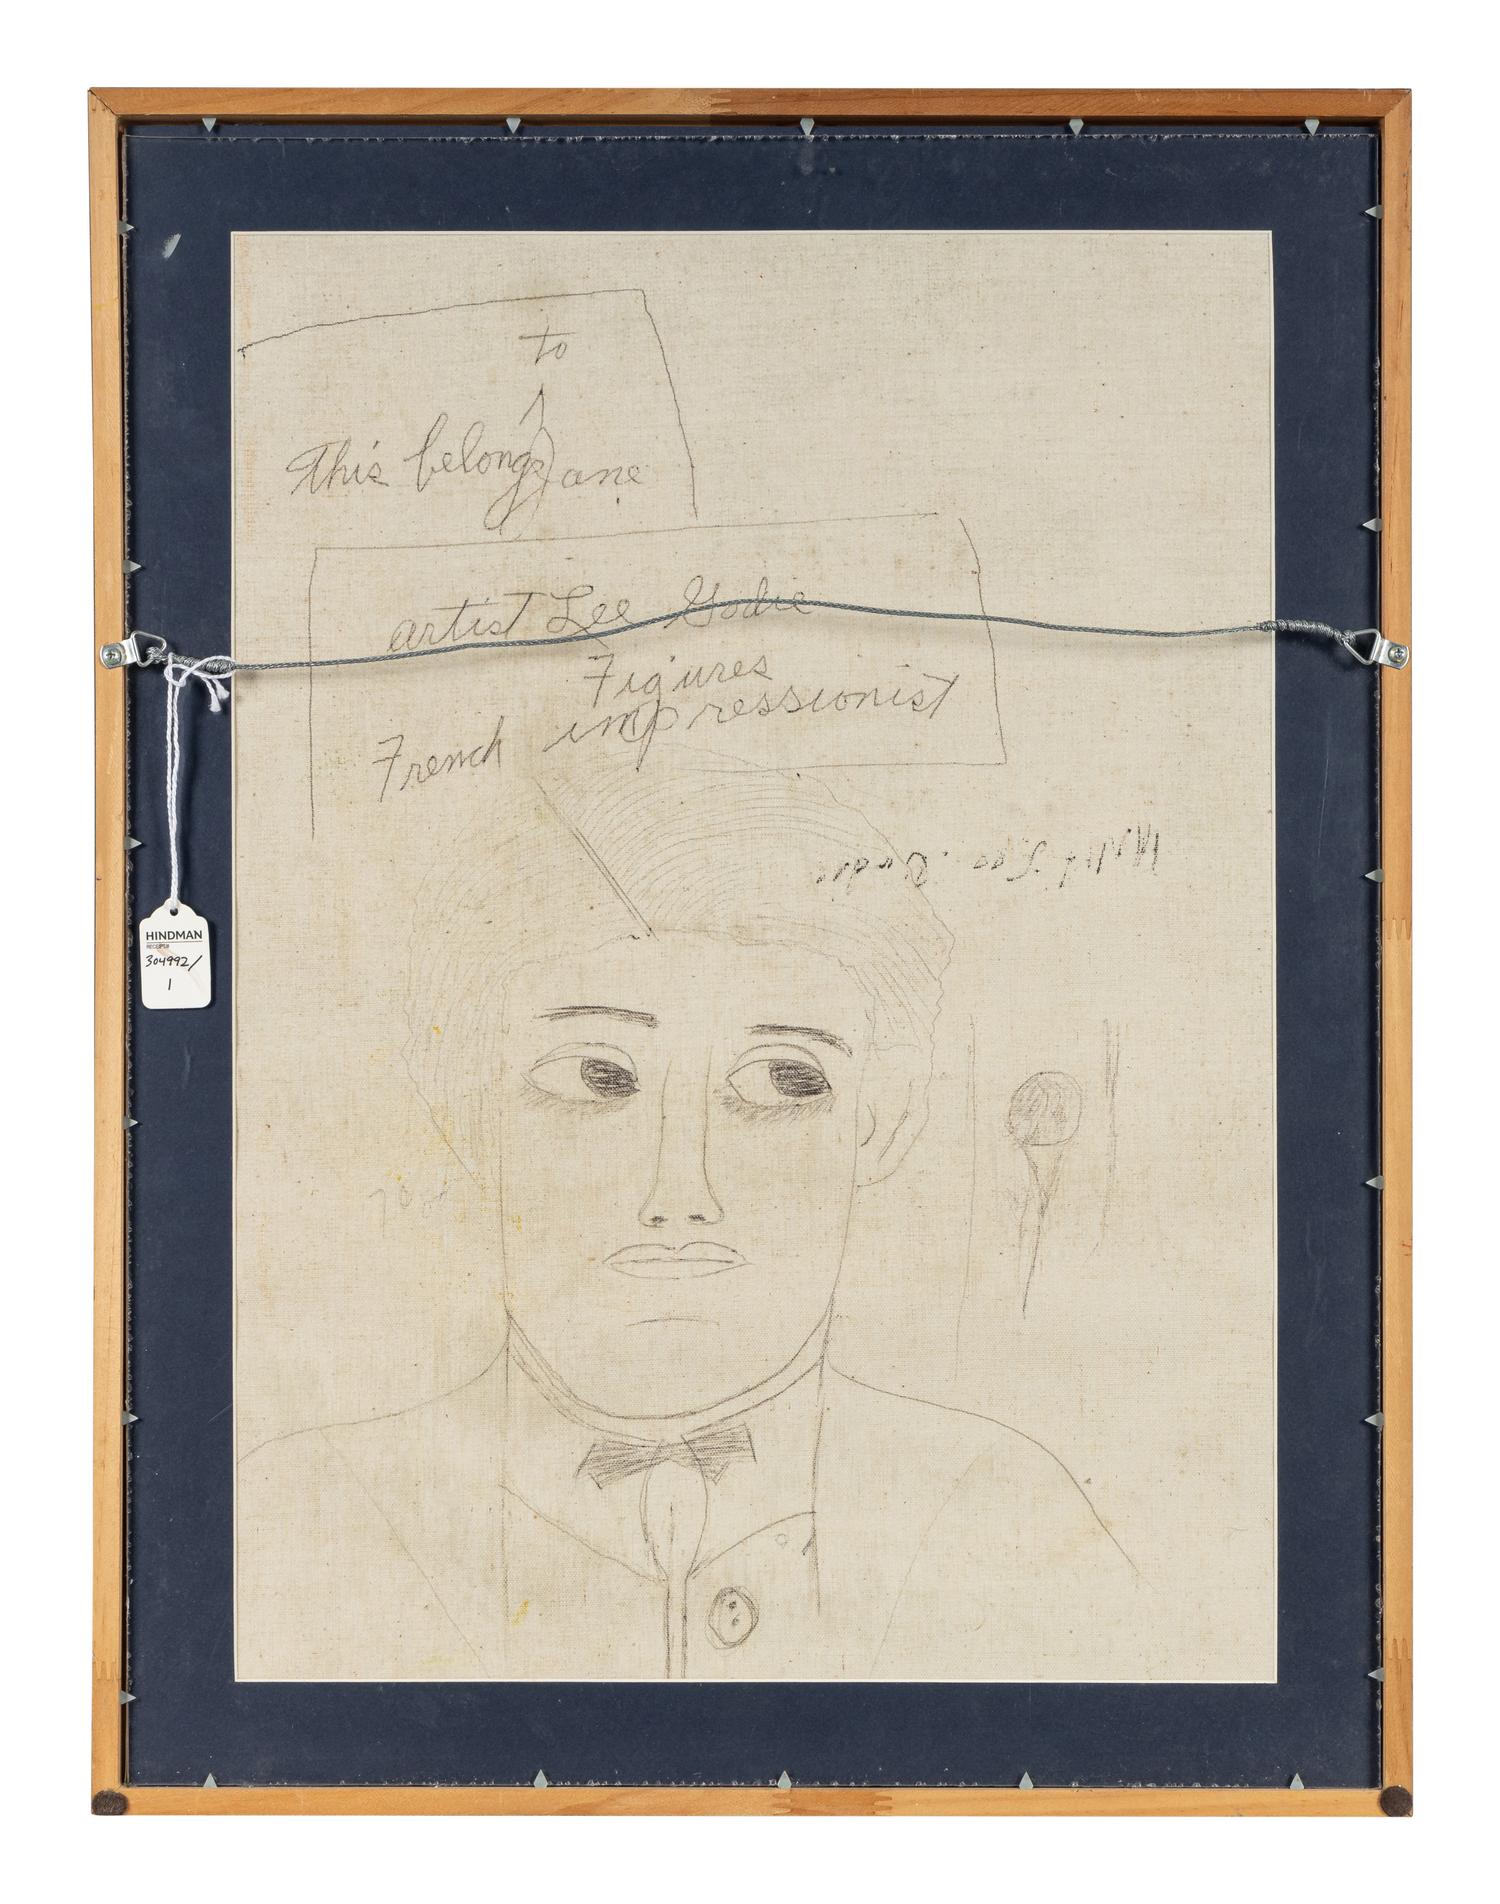 to
This belongs Jane
artist Lee Godie
Figures
French impressionist
HINDMAN
304992/
1